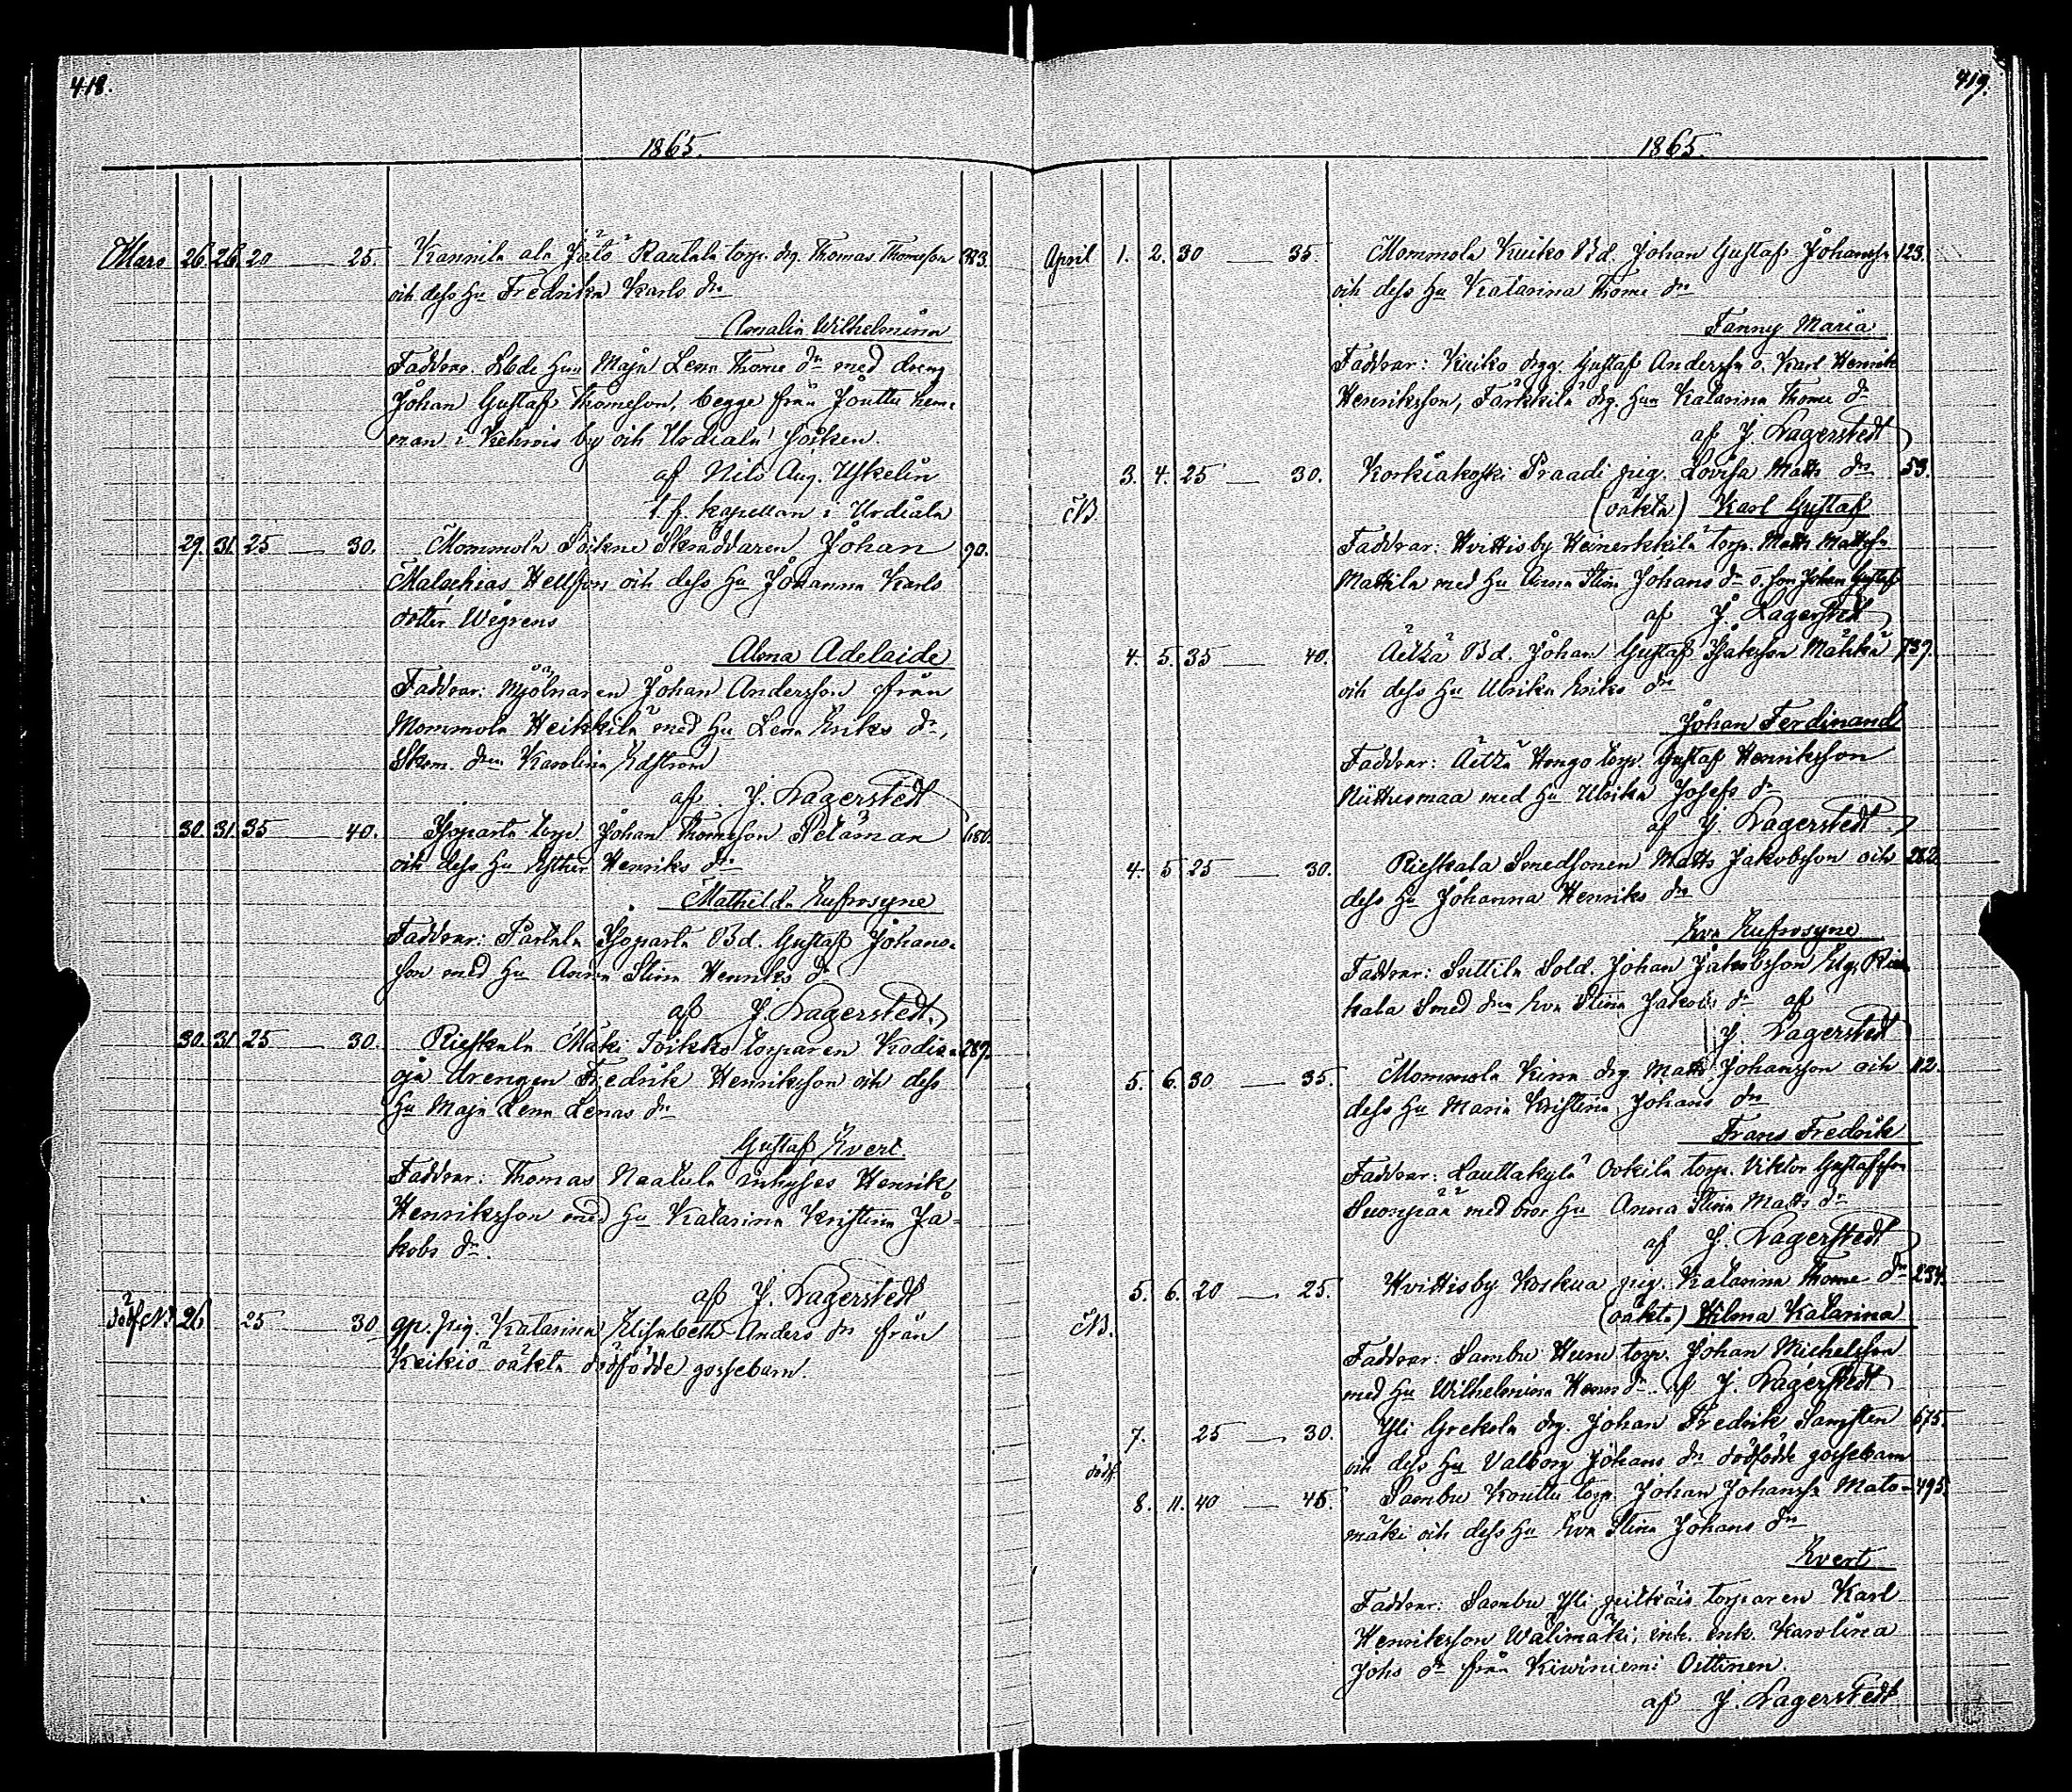 418.
1865.
Mars 26. 26. 20 — 25. Kannila ala Jätö Rautala torp. drg. Thomas Thomesson 383.
och dess Hu Fredrika Karls dr
Amalia Wilhelmina
Faddrar: Hu Maja Lena Thome dr med dreng
Johan Gustaf Thomesson, begge från Jouttu hem-
man i Kehrois by och Urdiala socken.
af Nils Aug. Uskelin
t.f. kapellan i Urdiala
29. 31. 25 — 30. Mommola Sockne Skräddaren Johan 90.
Malachias Hellfors och dess Hu Johanna Karls
dotter Wegrens
Alma Adelaide
Faddrar: Mjölnaren Johan Andersson från
Mommola Heikkilä med Hu Lena Eriks dr,
Skom. Karolina Edström
af J. Lagerstedt
30. 31. 35 — 40. Isoparta torp. Johan Thomesson Petäman 180.
och dess Hu Esther Henriks dr
Mathilda Eufrosyne
Faddrar: Partala Isoparta Bd. Gustaf Johans-
son med Hu Anna Stina Henriks dr
af J. Lagerstedt.
30. 31. 25 — 30. Rieskala Mäki Toikko torparen Kodis- 289.
oja drengen Fredrik Henriksson och dess
Hu Maja Lena Lenas dr
Gustaf Evert.
Faddrar: Thomas Naatula inhyses Henrik
Henriksson med Hu Katarina Kristina Ja-
kobs dr.
af J. Lagerstedt
dödf. NB. 26. 25 — 30 gp. pig. Katarina Elisabeth Anders dr från
Keikiö oäkta dödfödde gossebarn.
419.
1865.
April 1. 2. 30 — 35. Mommola Kuiko Bd. Johan Gustaf Johanss. 123.
och dess Hu Katarina Thome dr
Fanny Maria
Faddrar: Kuiko drgg. Gustaf Anderss. o. Karl Henrik
Henriksson, Tärkkilä drg. Hu Katarina Thome dr
af J. Lagerstedt
3. 4. 25 — 30. Korkiakoski Praadi pig. Lovisa Matts dr 53.
NB. (oäkta) Karl Gustaf
Faddrar: Hvittisby Heinerkkilä torp. Matts Mattss.
Mattila med Hu Anna Stina Johans dr o. son Johan Gustaf
af J. Lagerstedt
4. 5. 35 — 40. Äetzä Bd. Johan Gustaf Isaksson Mähkä 739.
och dess Hu Ulrika Eriks dr
Johan Ferdinand
Faddrar: Äetzä Hongo torp. Gustaf Henriksson
Niittusmaa med Hu Ulrika Josefs dr
af J. Lagerstedt
4. 5 25 — 30. Rieskala Smedsonen Matts Jakobsson och 282.
dess Hu Johanna Henriks dr
Eva Eufrosyne
Faddrar: Suttila Sold. Johan Jakobsson Elg, Ries-
kala Smed Eva Stina Jakobs dr af
J. Lagerstedt
5. 6. 30 — 35. Mommola Kinn drg. Matts Johansson och 112.
dess Hu Maria Kristina Johans dr
Frans Fredrik
Faddrar: Lauttakylä Ockila torp. Viktor Gustafsson
Suonpää med dess Hu Anna Stina Matts dr
af J. Lagerstedt
5. 6. 20 — 25. Hvittisby Koskua pig. Katarina Thome dr 234.
NB. (oäkta) Hilma Katarina
Faddrar: Sambu Huru torp. Johan Michelsson
med Hu Wilhelmina Henr. dr af J. Lagerstedt
7. 25 — 30. Yli Grekola drg. Johan Fredrik Samsten 675.
dödf. och dess Hu Valborg Johans dr dödfödde gossebarn
8. 11. 40 — 45. Sambu Kouttu torp. Johan Johanss. Mato- 495.
mäki och dess Hu Eva Stina Johans dr
Evert
Faddrar: Sambu Yli torparen Karl
Henriksson Wälimäki, inh. enk. Karolina
Johs dr från Kiviniemi Oittinen.
af J. Lagerstedt